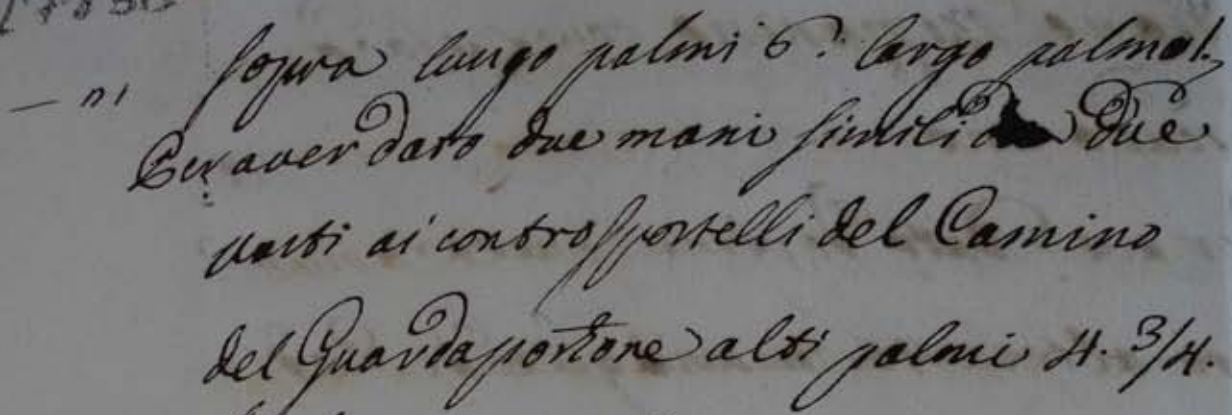 sopra lungo palmi 6: largo palmo 1.
Per aver dato due mani simili da due
parti ai controsportelli del Camino
del Guardaportone alti palmi 4. 3/4.